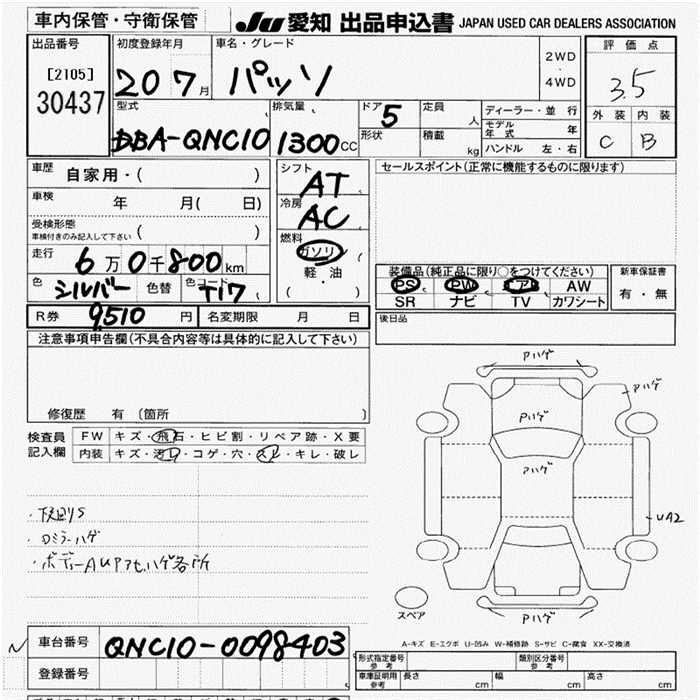 車内保管・守衛保管
JU 愛知 出品申込書 JAPAN USED CAR DEALERS ASSOCIATION
出品番号 初度登録年月 車名・グレード 評価点
[2105] 20 7月 パッソ 2WD・4WD 3.5
30437
型式 排気量 ドア 5 定員 人 ディーラー・並行 外装 内装
DBA-QNC10 1300CC 形状 積載 kg モデル年式 年 C B
ハンドル 左・右
車歴 自家用・( ) シフト AT セールスポイント(正常に機能するものに限ります)
車検 年 月( 日) 冷房 AC
受検形態 車検付きのみ記入して下さい ( ) 燃料 ガソリン
走行 6万0千800km 軽・油 装備品(純正品に限り○をつけてください) 新車保証書
色 シルバー 色替 色コード T17 ( ) PS PW エアB AW 有・無
SR ナビ TV カワシート
R券 9510円 名変期限 月 日 後日品
注意事項申告欄(不具合内容等は具体的に記入して下さい)
修復歴 有(箇所 )
検査員記入欄 FW キズ・飛石・ヒビ割・リペア跡・X要
内装 キズ・汚れ・コゲ・穴・スレ・キレ・破レ
Pハゲ
Pハゲ
Pハゲ
Pハゲ
UA2
・下廻りS
・ロミラーハゲ
・ボディーAUPアセハゲ各所
スペア
Pハゲ
A-キズ E-エクボ U-凹み W-補修跡 S-サビ C-腐食 XX-交換済
車台番号 QNC10-0098403
登録番号
形式指定番号 参考 類別区分番号 参考
車庫証明用 参考 長さ cm 幅 cm 高さ cm